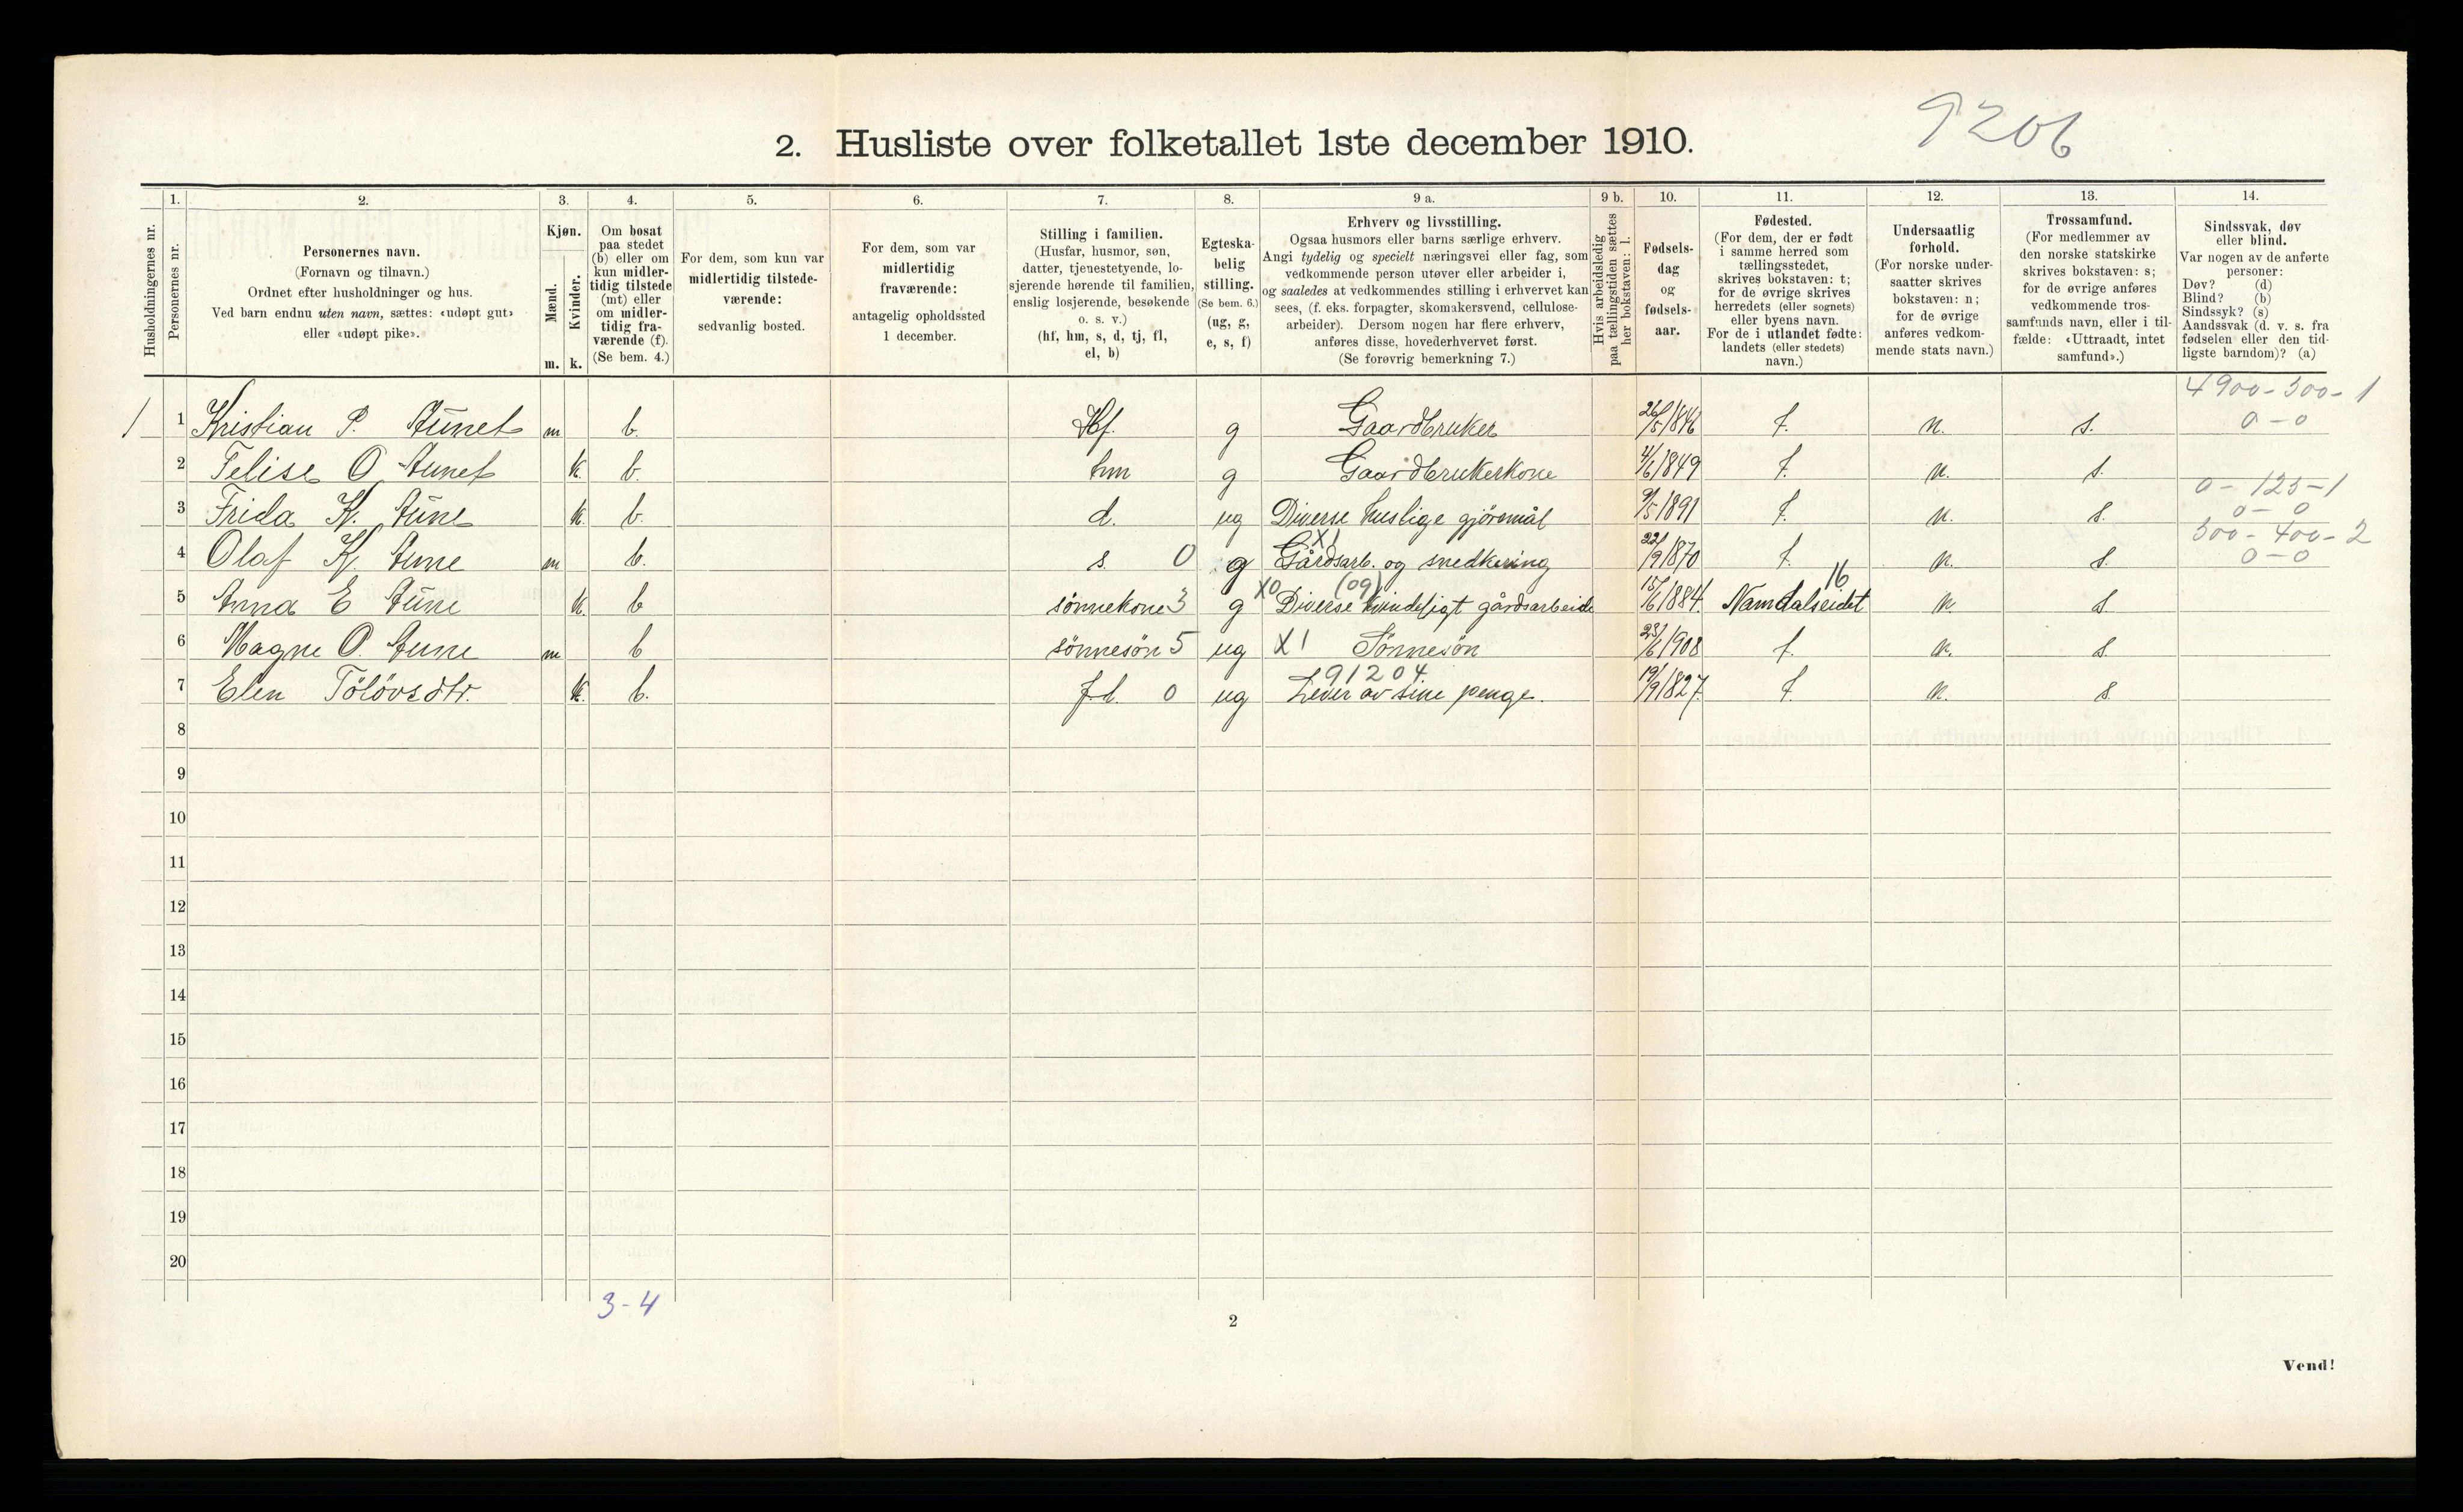 9206
2. Husliste over folketallet 1ste december 1910.
Husholdningernes nr.
1. Personernes nr.
2. Personernes navn.
(Fornavn og tilnavn.)
Ordnet efter husholdninger og hus.
Ved barn endnu uten navn, sættes: «udøpt gut»
eller «udøpt pike».
3. Kjøn.
Mænd. m.
Kvinder. k.
4. Om bosat
paa stedet
(b) eller om
kun midler-
tidig tilstede
(mt) eller
om midler-
tidig fra-
værende (f).
(Se bem. 4.)
5. For dem, som kun var
midlertidig tilstede-
værende:
sedvanlig bosted.
6. For dem, som var
midlertidig
fraværende:
antagelig opholdssted
1 december.
7. Stilling i familien.
(Husfar, husmor, søn,
datter, tjenestetyende, lo-
sjerende hørende til familien,
enslig losjerende, besøkende
o. s. v.)
(hf, hm, s, d, tj, fl,
el, b)
8. Egteska-
belig
stilling.
(Se bem. 6.)
(ug, g,
e, s, f)
9 a. Erhverv og livsstilling.
Ogsaa husmors eller barns særlige erhverv.
Angi tydelig og specielt næringsvei eller fag, som
vedkommende person utøver eller arbeider i,
og saaledes at vedkommendes stilling i erhvervet kan
sees, (f. eks. forpagter, skomakersvend, cellulose-
arbeider). Dersom nogen har flere erhverv,
anføres disse, hovederhvervet først.
(Se forøvrig bemerkning 7.)
9 b. Hvis arbeidsledig
paa tællingstiden sættes
her bokstaven: l.
10. Fødsels-
dag
og
fødsels-
aar.
11. Fødested.
(For dem, der er født
i samme herred som
tællingsstedet,
skrives bokstaven: t;
for de øvrige skrives
herredets (eller sognets)
eller byens navn.
For de i utlandet fødte:
landets (eller stedets)
navn.)
12. Undersaatlig
forhold.
(For norske under-
saatter skrives
bokstaven: n;
for de øvrige
anføres vedkom-
mende stats navn.)
13. Trossamfund.
(For medlemmer av
den norske statskirke
skrives bokstaven: s;
for de øvrige anføres
vedkommende tros-
samfunds navn, eller i til-
fælde: «Uttraadt, intet
samfund».)
14. Sindssvak, døv
eller blind.
Var nogen av de anførte
personer:
Døv? (d)
Blind? (b)
Sindssyk? (s)
Aandssvak (d. v. s. fra
fødselen eller den tid-
ligste barndom)? (a)
4900-300-1
1 1 Kristian P. Aunet m b. Hf. g Gaardbruker 26/5 1846 t. n. s. 0-0
2 Telise O Aunet k. b. hm g Gaardbrukerkone 4/6 1849 t. n. s.
0-125-1
3 Frida K. Aune k. b. d. ug Diverse huslige gjöremål 9/5 1891 t. n. s. 0-0
X1 300-400-2
4 Olaf K. Aune m b. s. 0 g Gårdsarb. og snedkering 22/9 1870 t. n. s. 0-0
X0 (09) 16
5 Anna E Aune k. b sönnekone 3 g Diverse kvindeligt gårdsarbeide 15/6 1884. Namdalseidet n. s
6 Magne O. Aune m b sönnesön 5 ug X1 Sönnesön 23/6 1908 t. n. s.
91204
7 Elen Tölövsdtr. k. b. fl. 0 ug Lever av sine penge. 19/9 1827. t. n. s.
8
9
10
11
12
13
14
15
16
17
18
19
20
3-4
2
Vend!